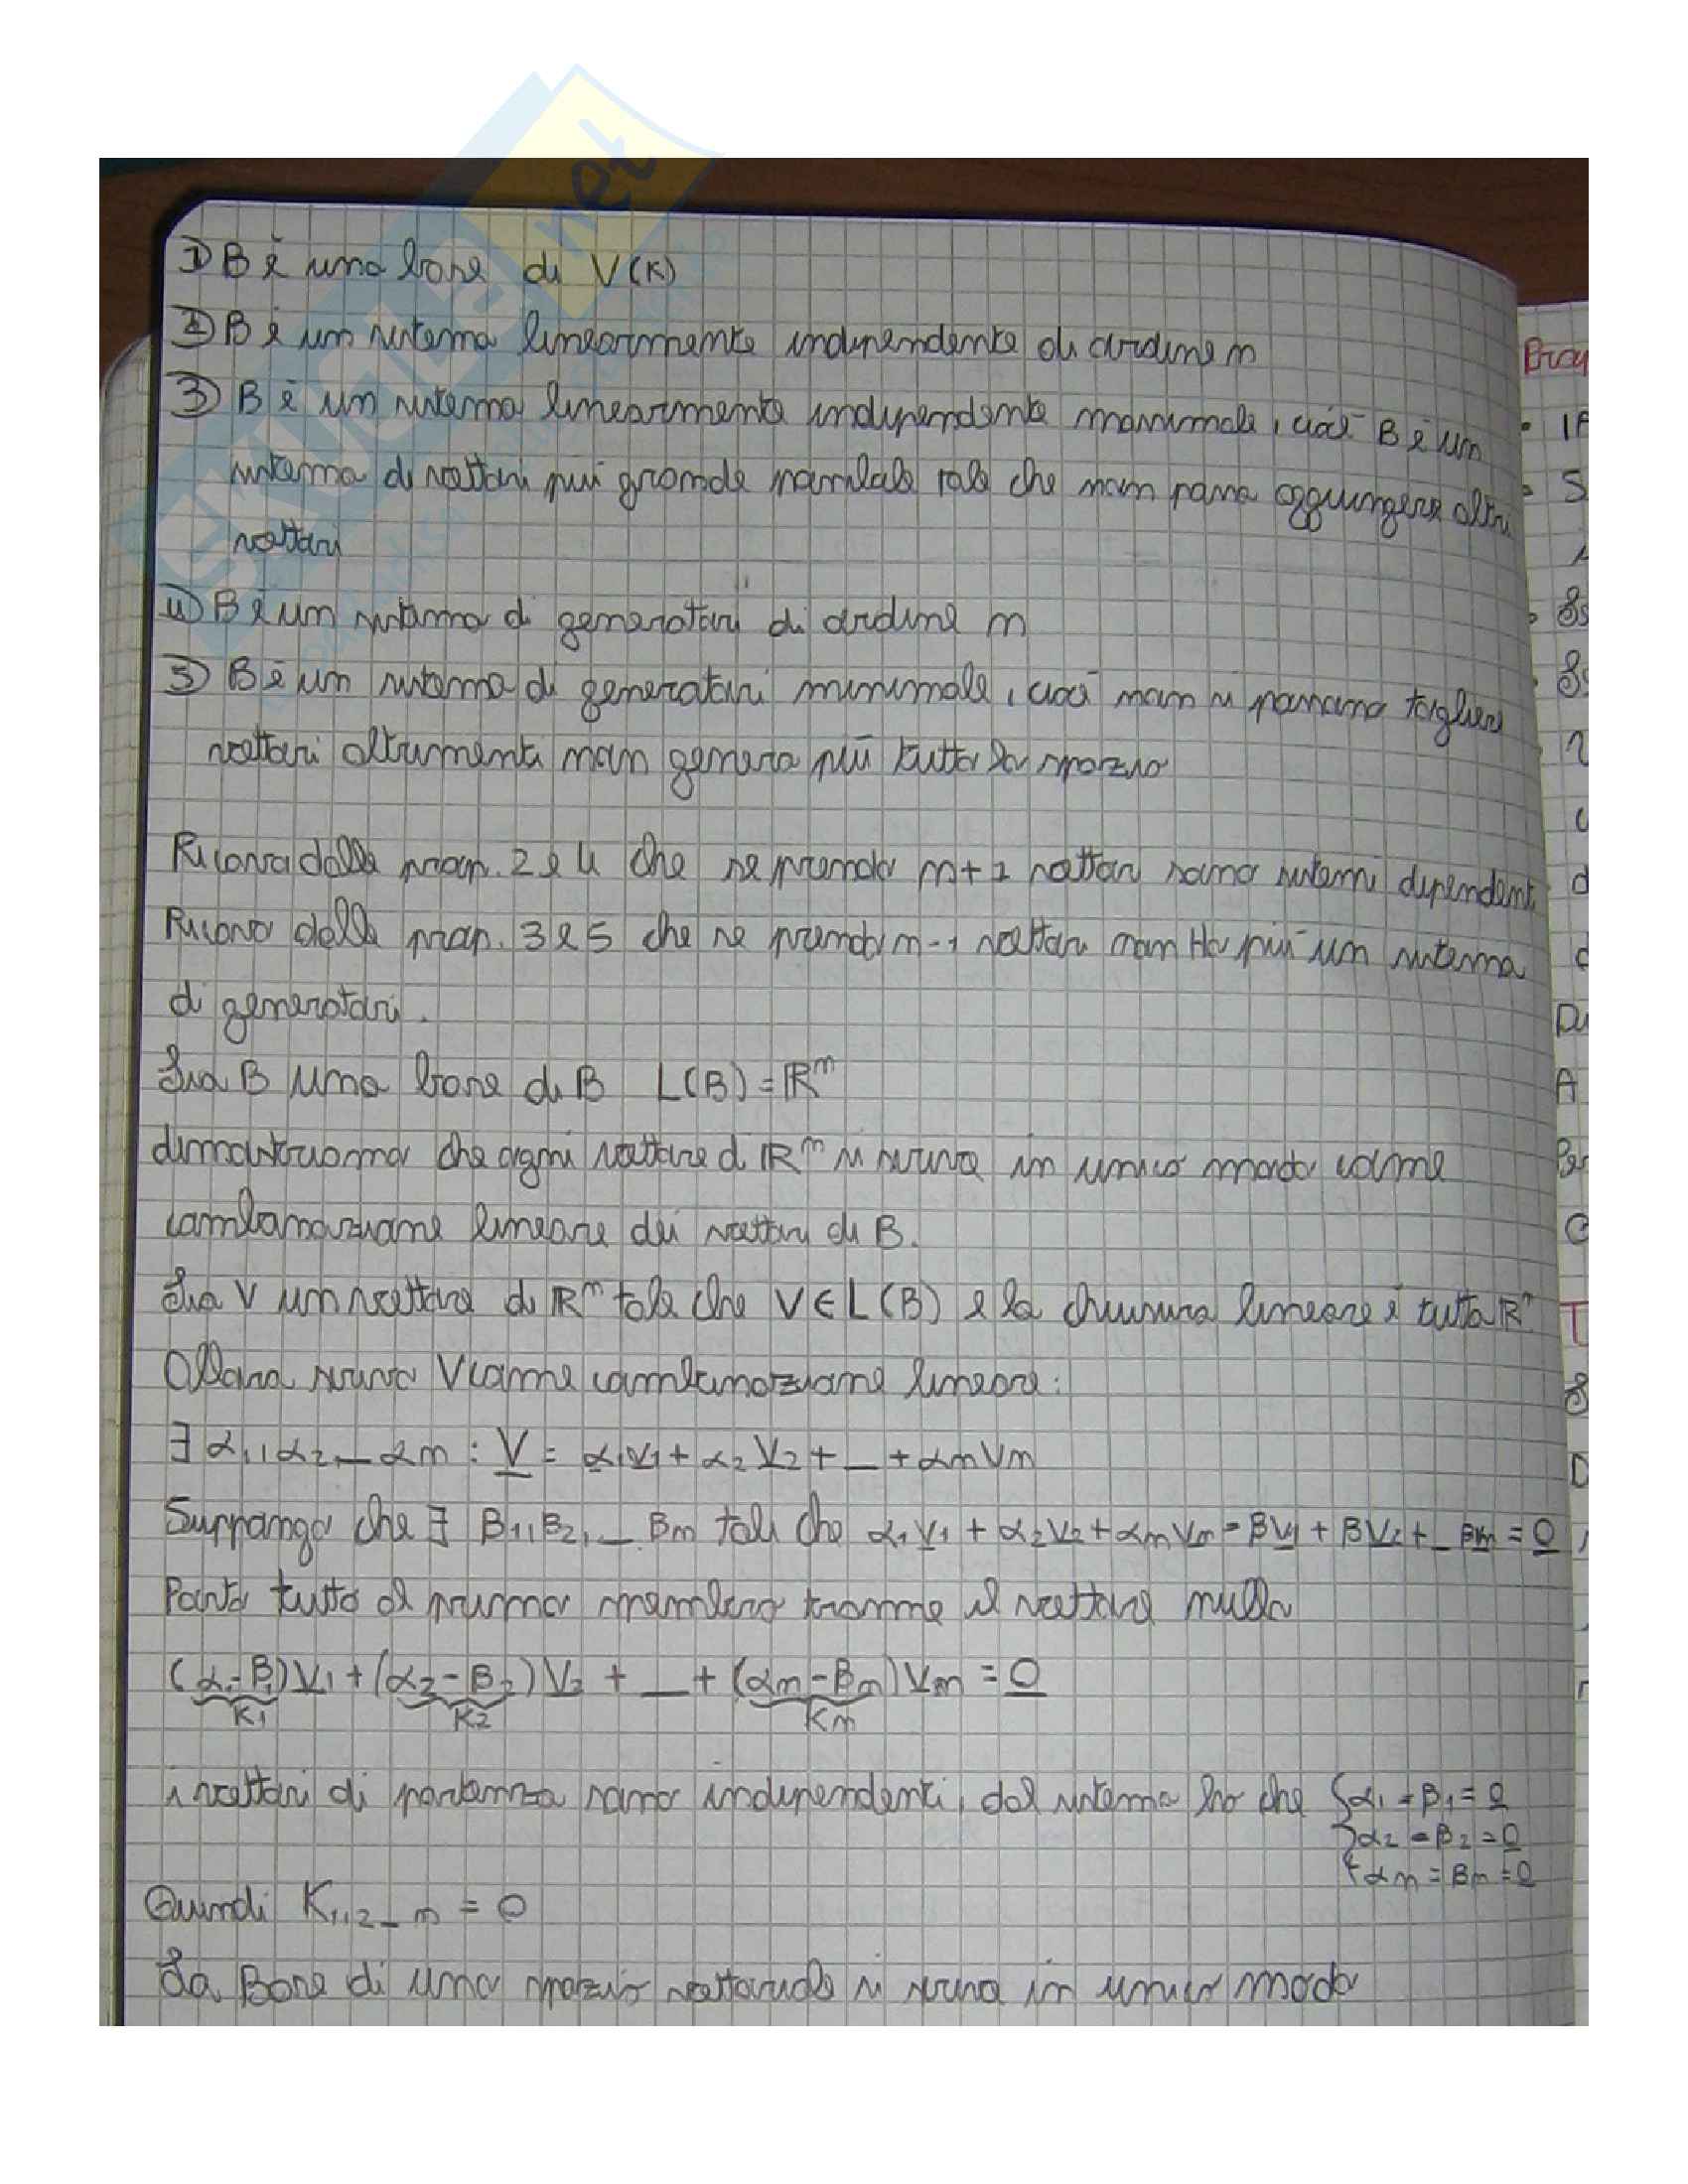 1) B è una base di V(K)
2) B è un sistema linearmente indipendente di ordine n
3) B è un sistema linearmente indipendente massimale, cioè B è un
sistema di vettori più grande possibile tale che non possa aggiungere altri
vettori
4) B è un sistema di generatori di ordine n
5) B è un sistema di generatori minimale, cioè non si possono togliere
vettori altrimenti non genera più tutto lo spazio
Ricavo dalle prop. 2 e 4 che se prendo n+1 vettori sono sistemi dipendenti
Ricavo dalle prop. 3 e 5 che se prendo n-1 vettori non ho più un sistema
di generatori.
Sia B una base di B L(B) = ℝⁿ
dimostriamo che ogni vettore di ℝⁿ si scrive in unico modo come
combinazione lineare dei vettori di B.
Sia V un vettore di ℝⁿ tale che V ∈ L(B) e la chiusura lineare è tutto ℝⁿ
Allora scrivo V come combinazione lineare:
∃ α₁, α₂, _ αn : V = α₁V₁ + α₂V₂ + _ + αnVn
Suppongo che ∃ β₁, β₂, _ βn tali che α₁V₁ + α₂V₂ + αnVn = βV₁ + βV₂ + _ βn = 0
Porto tutto al primo membro tranne il vettore nullo
(α₁-β₁)V₁ + (α₂-β₂)V₂ + _ + (αn-βn)Vn = 0
K₁ K₂ Kn
i vettori di partenza sono indipendenti, dal sistema ho che { α₁ = β₁ = 0
α₂ = β₂ = 0
αn = βn = 0
Quindi K₁,₂ _ n = 0
La Base di uno spazio vettoriale si scrive in unico modo
SKUOLA.net